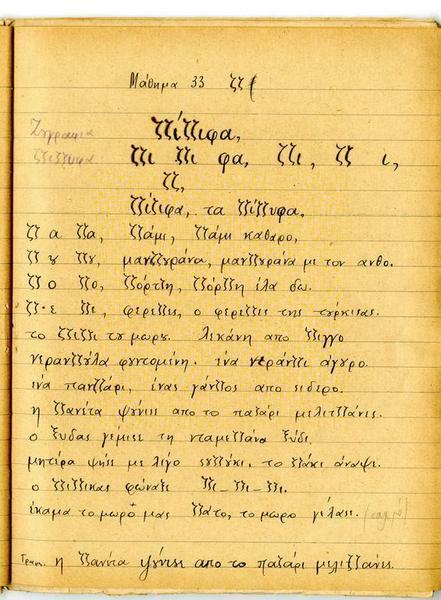 Μάθημα 33 τζ
Ζωγραφια τζίτζιφα,
τζίτζυφα τζι τζι φα, τζι, τζ ι,
τζ,
τζίτζιφα, τα τζίτζυφα.
τζ α τζα, τζάμι, τζάμι καθαρο,
τζ ου τζου, μαντζουράνα, μαντζουράνα με τον ανθο.
τζ ο τζο, τζόρτζη, τζόρτζη έλα δω.
τζ ε τζε, φερετζες, ο φερετζες της τούρκισας.
το τζιτζι του μωρου. λεκάνη απο τζιγγο
νεραντζούλα φουντομένη. ένα νεράντζι άγουρο.
ένα παντζάρι, ένας γάντζος απο σιδερο.
η τζανέτα ψώνισε απο το παζάρι μελιτζάνες.
ο ξυδας γέμισε τη νταμετζάνα ξύδι.
μητέρα ψήσε με λίγο σουτζούκι. το τζάκι άναψε.
ο τζίτζικας φώναξε τζι - τζι - τζι.
έκαμα το μωρο μας τζάτο, το μωρο γέλασε.
η τζανέτα ψώνισε απο το παζάρι μελιτζάνες